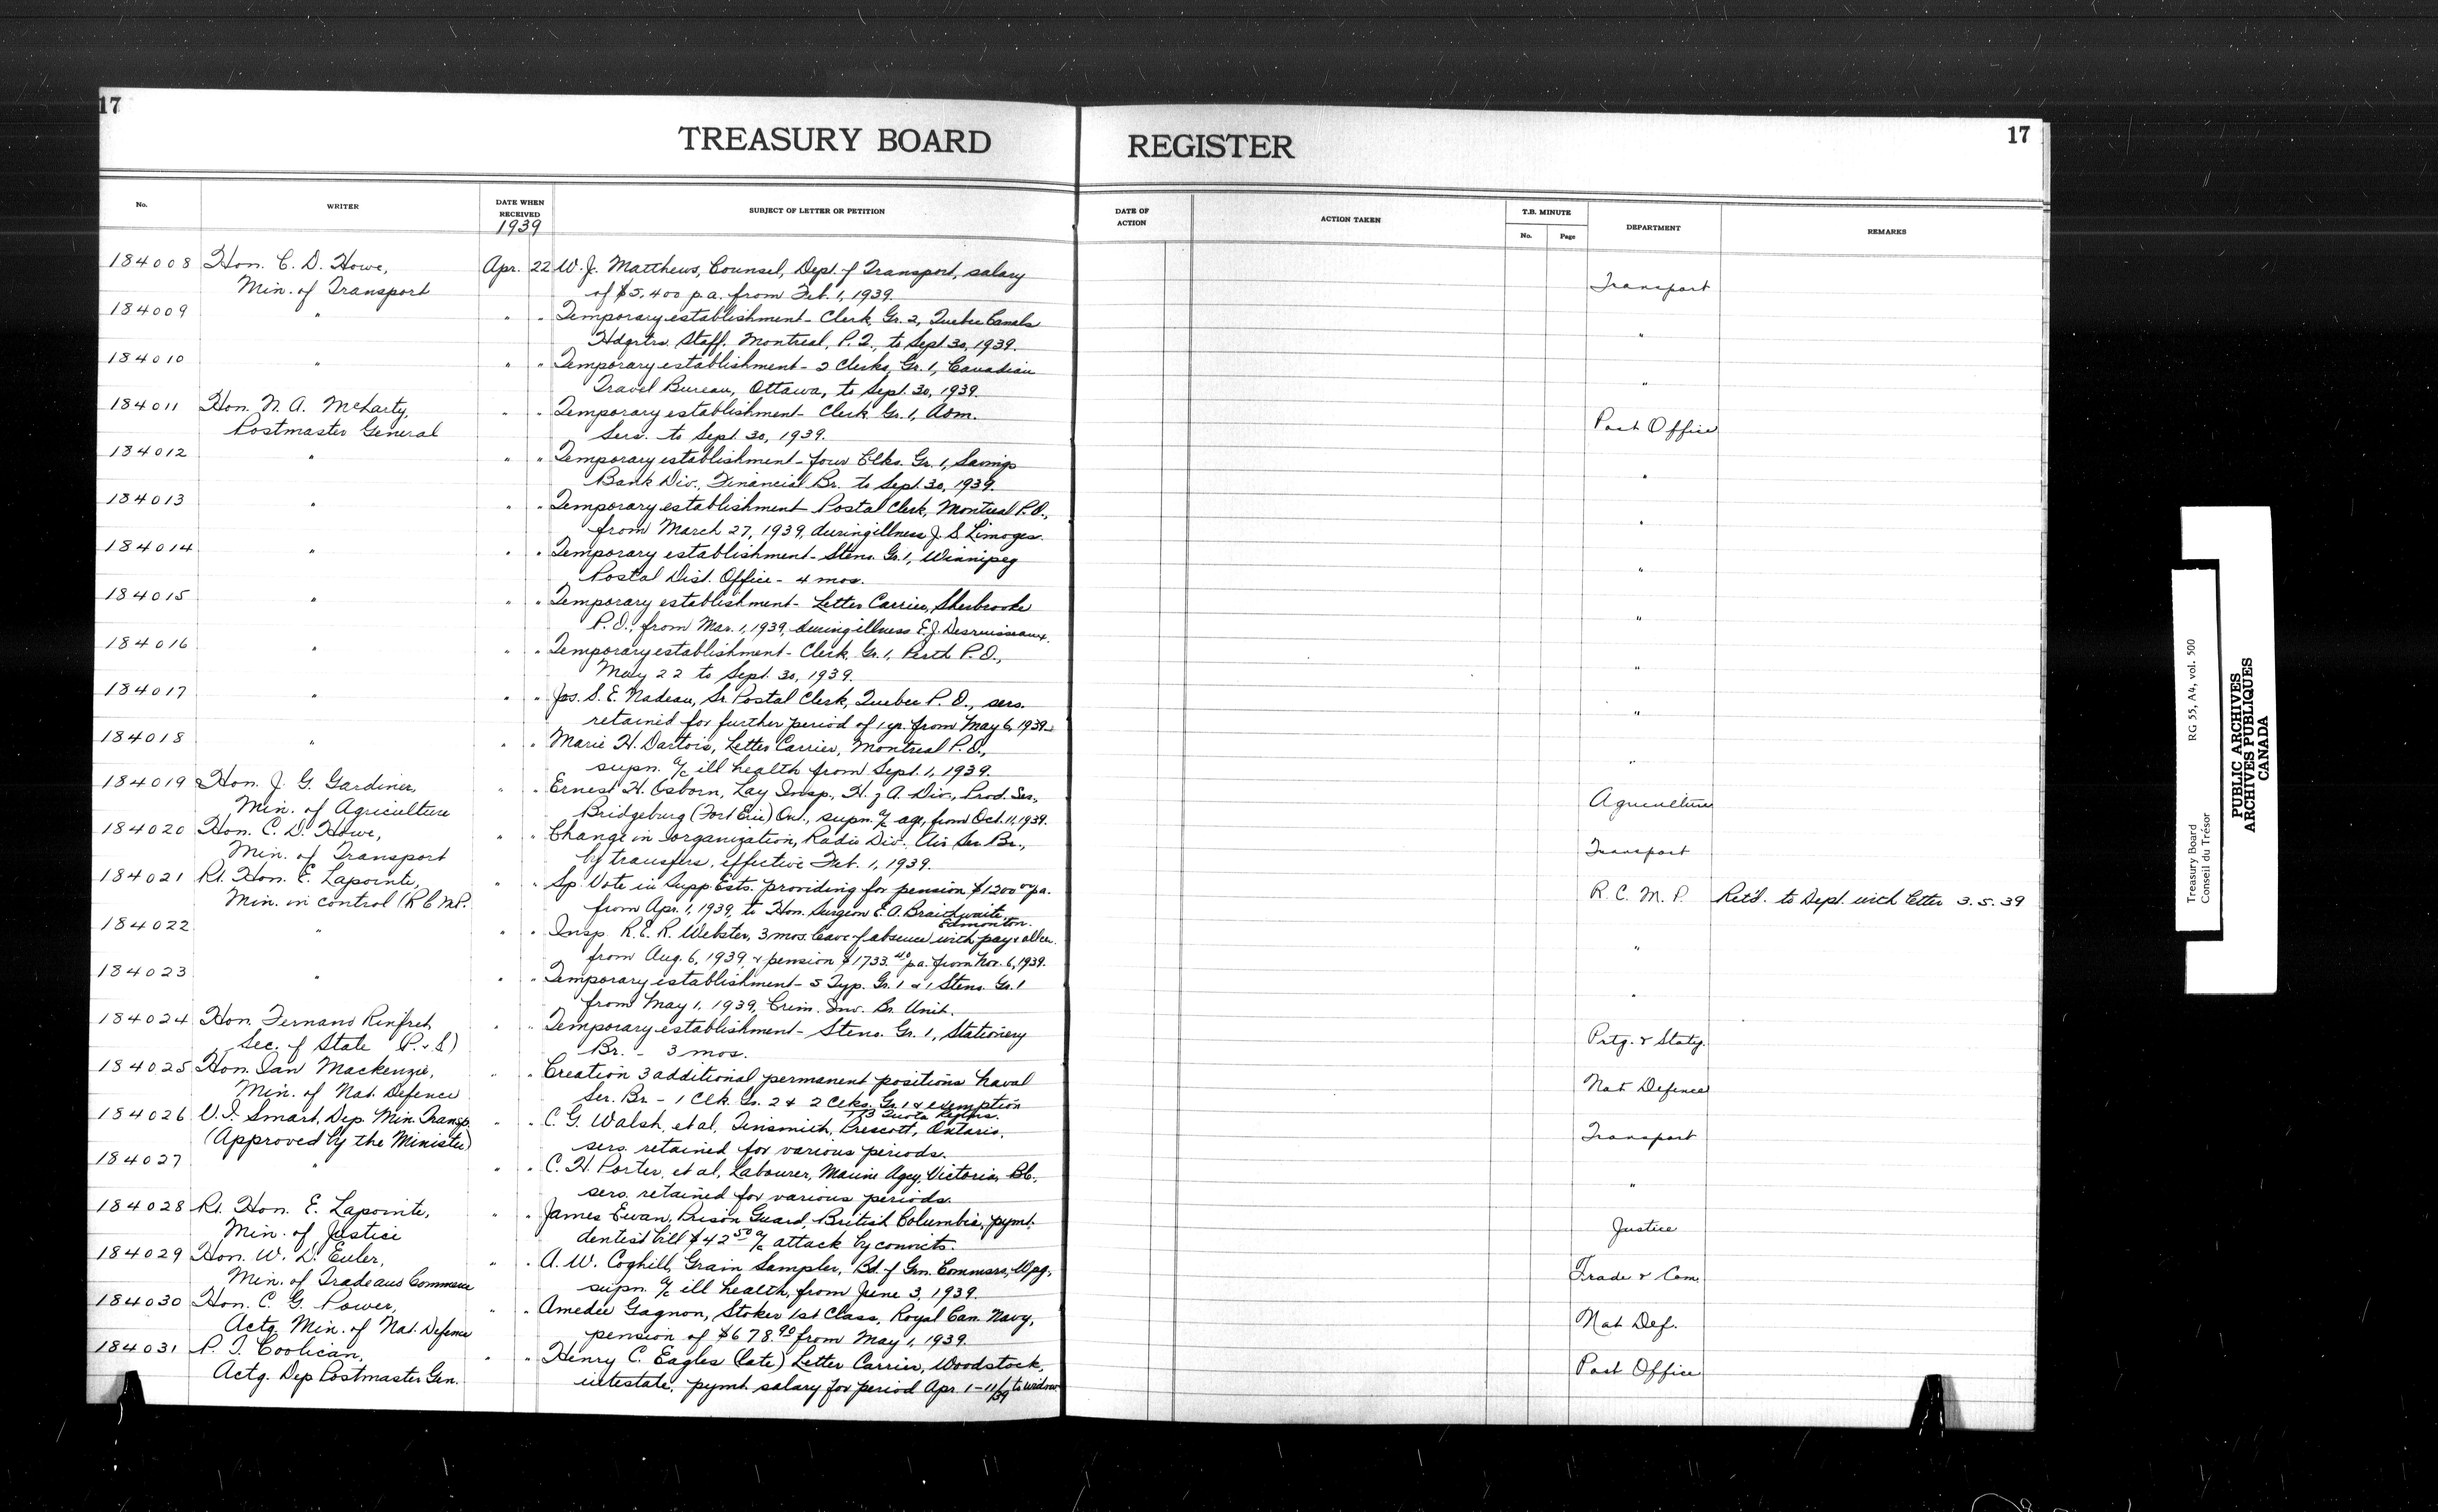 17
TREASURY BOARD REGISTER
17
No. WRITER DATE WHEN RECEIVED SUBJECT OF LETTER OR PETITION DATE OF ACTION ACTION TAKEN T.B. MINUTE No. Page DEPARTMENT REMARKS
1939
184008 Hon. C. D. Howe, Apr. 22 W. J. Matthews, Counsel, Dept. of Transport, salary
Min. of Transport of $5,400 p.a. from Feb. 1, 1939. Transport
184009 " " " Temporary establishment - Clerk, Gr. 2, Quebec Canals
Hdqrtrs. Staff, Montreal, P.Q., to Sept. 30, 1939. "
184010 " " " Temporary establishment - 2 Clerks, Gr. 1, Canadian
Travel Bureau, Ottawa, to Sept. 30, 1939. "
184011 Hon. N. A. McLarty, " " Temporary establishment - Clerk Gr. 1, Adm.
Postmaster General Serv. to Sept. 30, 1939. Post Office
184012 " " " Temporary establishment - four Clks. Gr. 1, Savings
Bank Div., Financial Br. to Sept. 30, 1939. "
184013 " " " Temporary establishment Postal Clerk, Montreal P.O.,
from March 27, 1939, during illness J. S. Limoges. "
184014 " " " Temporary establishment - Steno. Gr. 1, Winnipeg
Postal Dist. Office - 4 mos. "
184015 " " " Temporary establishment - Letter Carrier, Sherbrooke
P.O., from Mar. 1, 1939, during illness E. J. Desruisseaux. "
184016 " " " Temporary establishment - Clerk, Gr. 1, Perth P.O.,
May 22 to Sept. 30, 1939. "
184017 " " " Jos. S. E. Nadeau, Sr. Postal Clerk, Quebec P.O., sers.
retained for further period of 1 yr. from May 6, 1939. "
184018 " " " Marie H. Dartois, Letter Carrier, Montreal P.O.,
supn. a/c ill health from Sept. 1, 1939. "
184019 Hon. J. G. Gardiner, " " Ernest H. Osborn, Lay Insp., H. of A. Div., Prod. Ser.,
Min. of Agriculture Bridgeburg (Fort Erie) Ont., supn. a/c age, from Oct. 11, 1939. Agriculture
184020 Hon. C. D. Howe, " " Change in organization, Radio Div. Air Ser. Br.,
Min. of Transport by transfers, effective Feb. 1, 1939. Transport
184021 Rt. Hon. E. Lapointe, " " Sp. Vote in Supp. Ests. providing for pension $1200 00 p.a.
Min. in control (R C M P. from Apr. 1, 1939, to Hon. Surgeon E. A. Braithwaite, R. C. M. P. Ret'd. to Dept. with letter 3.5.39
Edmonton.
184022 " " " Insp. R. E. R. Webster, 3 mos. leave of absence with pay & allces.
from Aug. 6, 1939 & pension $1733. 40 p.a. from Nov. 6, 1939. "
184023 " " " Temporary establishment - 5 Typ. Gr. 1 & 1 Steno. Gr. 1
from May 1, 1939, Crim. Inv. Br. Unit. "
184024 Hon. Fernand Rinfret, " " Temporary establishment - Steno. Gr. 1, Stationery
Sec. of State (P. & S.) Br. - 3 mos. Prtg. & Staty.
184025 Hon. Ian Mackenzie, " " Creation 3 additional permanent positions Naval
Min. of Nat. Defence Ser. Br. - 1 Clk. Gr. 2 & 2 Clks. Gr. 1 & exemption Nat Defence
1/3 Quota Regltns.
184026 V. I. Smart, Dep. Min. Transp. " " C. G. Walsh, et al, Tinsmith, Prescott, Ontario,
(Approved by the Minister) sers. retained for various periods. Transport
184027 " " " C. H. Porter, et al, Labourer, Marine Agcy, Victoria, B.C.,
sers. retained for various periods. "
184028 Rt. Hon. E. Lapointe, " " James Ewan, Prison Guard, British Columbia, pymt.
Min. of Justice dentist bill $42 50 a/c attack by convicts. Justice
184029 Hon. W. D. Euler, " " A. W. Coghill, Grain Sampler, Bd. of Grn. Commsrs, Wpg,
Min. of Trade and Commerce supn. a/c ill health, from June 3, 1939. Trade & Com.
184030 Hon. C. G. Power, " " Amedée Gagnon, Stoker 1st Class, Royal Can. Navy,
Actg. Min. of Nat. Defence pension of $678. 90 from May 1, 1939. Nat Def.
184031 P. T. Coolican, " " Henry C. Eagles (late) Letter Carrier, Woodstock,
Actg. Dep Postmaster Gen. intestate, pymt. salary for period Apr. 1-11/39 to widow Post Office
Treasury Board RG 55, A4, vol. 500
Conseil du Trésor
PUBLIC ARCHIVES
ARCHIVES PUBLIQUES
CANADA